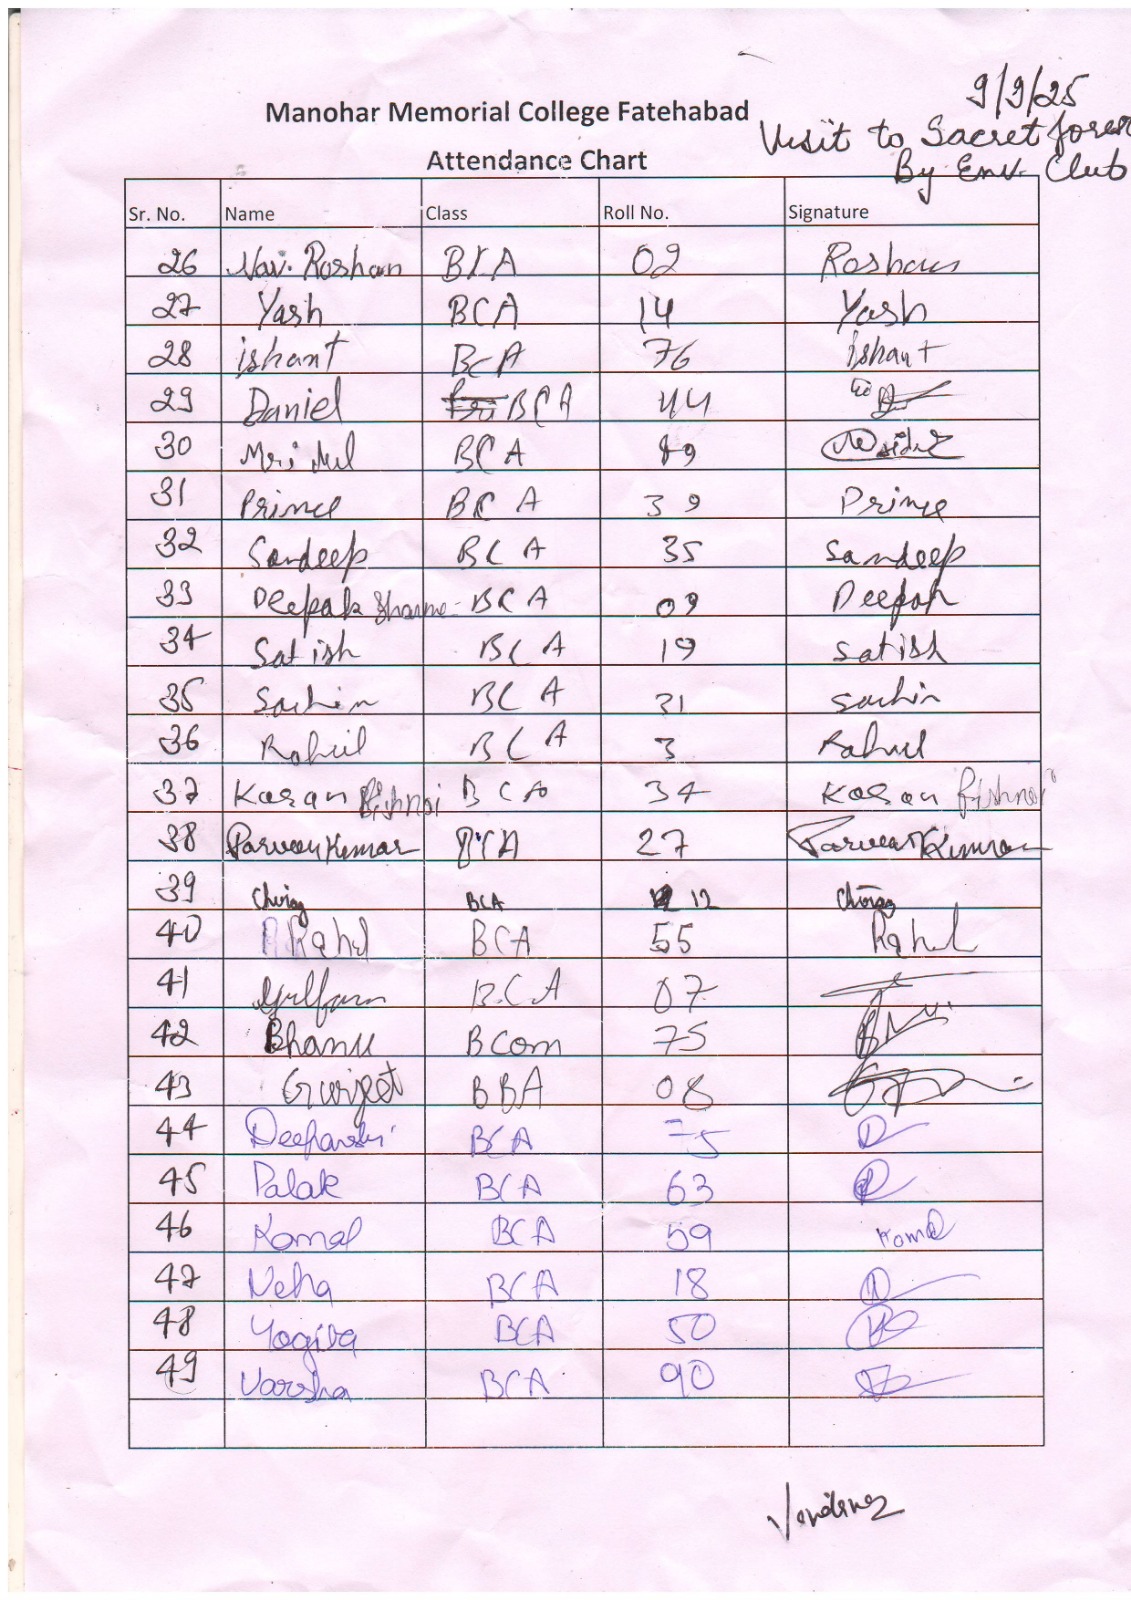 9/9/25
Manohar Memorial College Fatehabad
Visit to Sacret fores
Attendance Chart
By Env. Club
Sr. No. Name Class Roll No. Signature
26 Nav. Roshan BCA 02 Roshan
27 Yash BCA 14 Yash
28 ishant BCA 76 ishant
29 Daniel BCA 44
30 Mridul BCA 89
31 Prince BCA 39 Prince
32 Sandeep BCA 35 Sandeep
33 Deepak Sharma - BCA 09 Deepak
34 Satish BCA 19 Satish
35 Sachin BCA 31 Sachin
36 Rahul BCA 3 Rahul
37 Karan Bishnoi BCA 34 Karan Bishnoi
38 Parveen Kumar BCA 27 Parveen Kumar
39 Chirag BCA 12 Chirag
40 Rahul BCA 55 Rahul
41 BCA 07
42 Bhanu BCom 75
43 Gurjeet BBA 08
44 Deepanshi BCA 75
45 Palak BCA 63
46 Komal BCA 59 Komal
47 Neha BCA 18
48 Yogita BCA 50
49 Varsha BCA 90